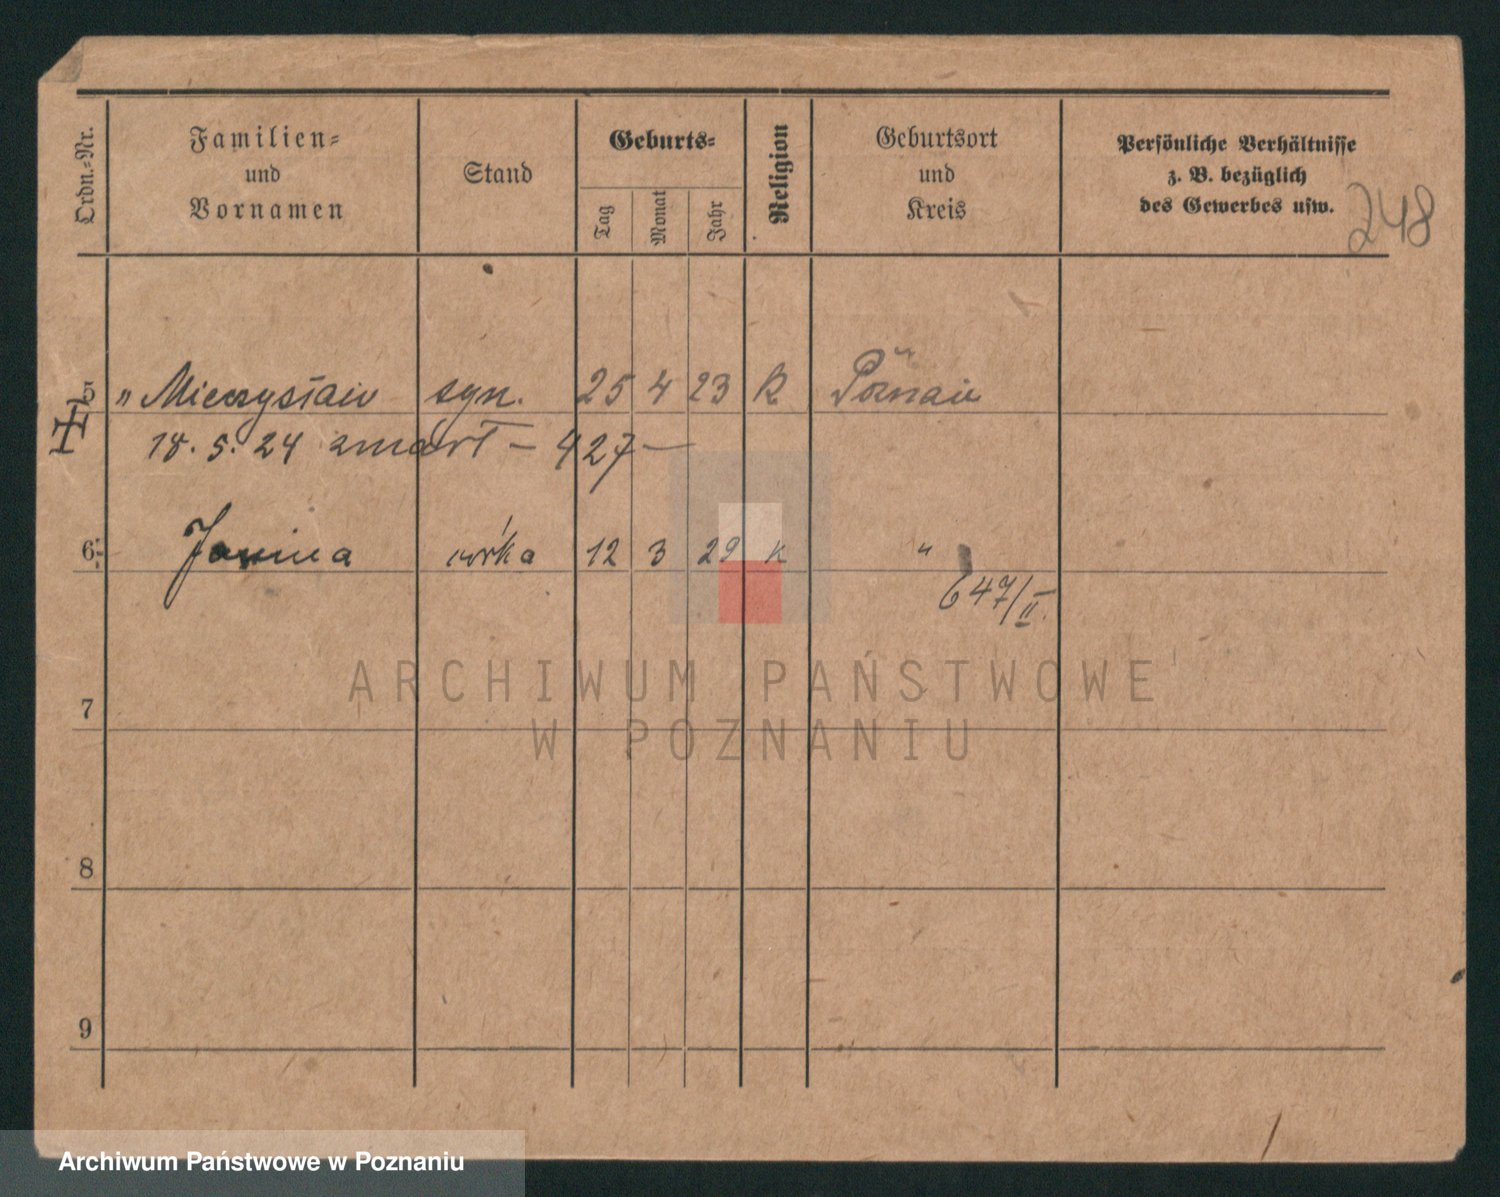 Ordn.-Nr.
Familien-
und
Vornamen
Stand
Geburts-
Tag
Monat
Jahr
Religion
Geburtsort
und
Kreis
Persönliche Verhältnisse
z. B. bezüglich
des Gewerbes usw.
248
5 " Mieczysław syn. 25 4 23 k Poznań
18. 5. 24 zmarł – 427 –
6 Janina córka 12 3 29 k "
647/II.
7
ARCHIWUM PAŃSTWOWE
W POZNANIU
8
9
Archiwum Państwowe w Poznaniu